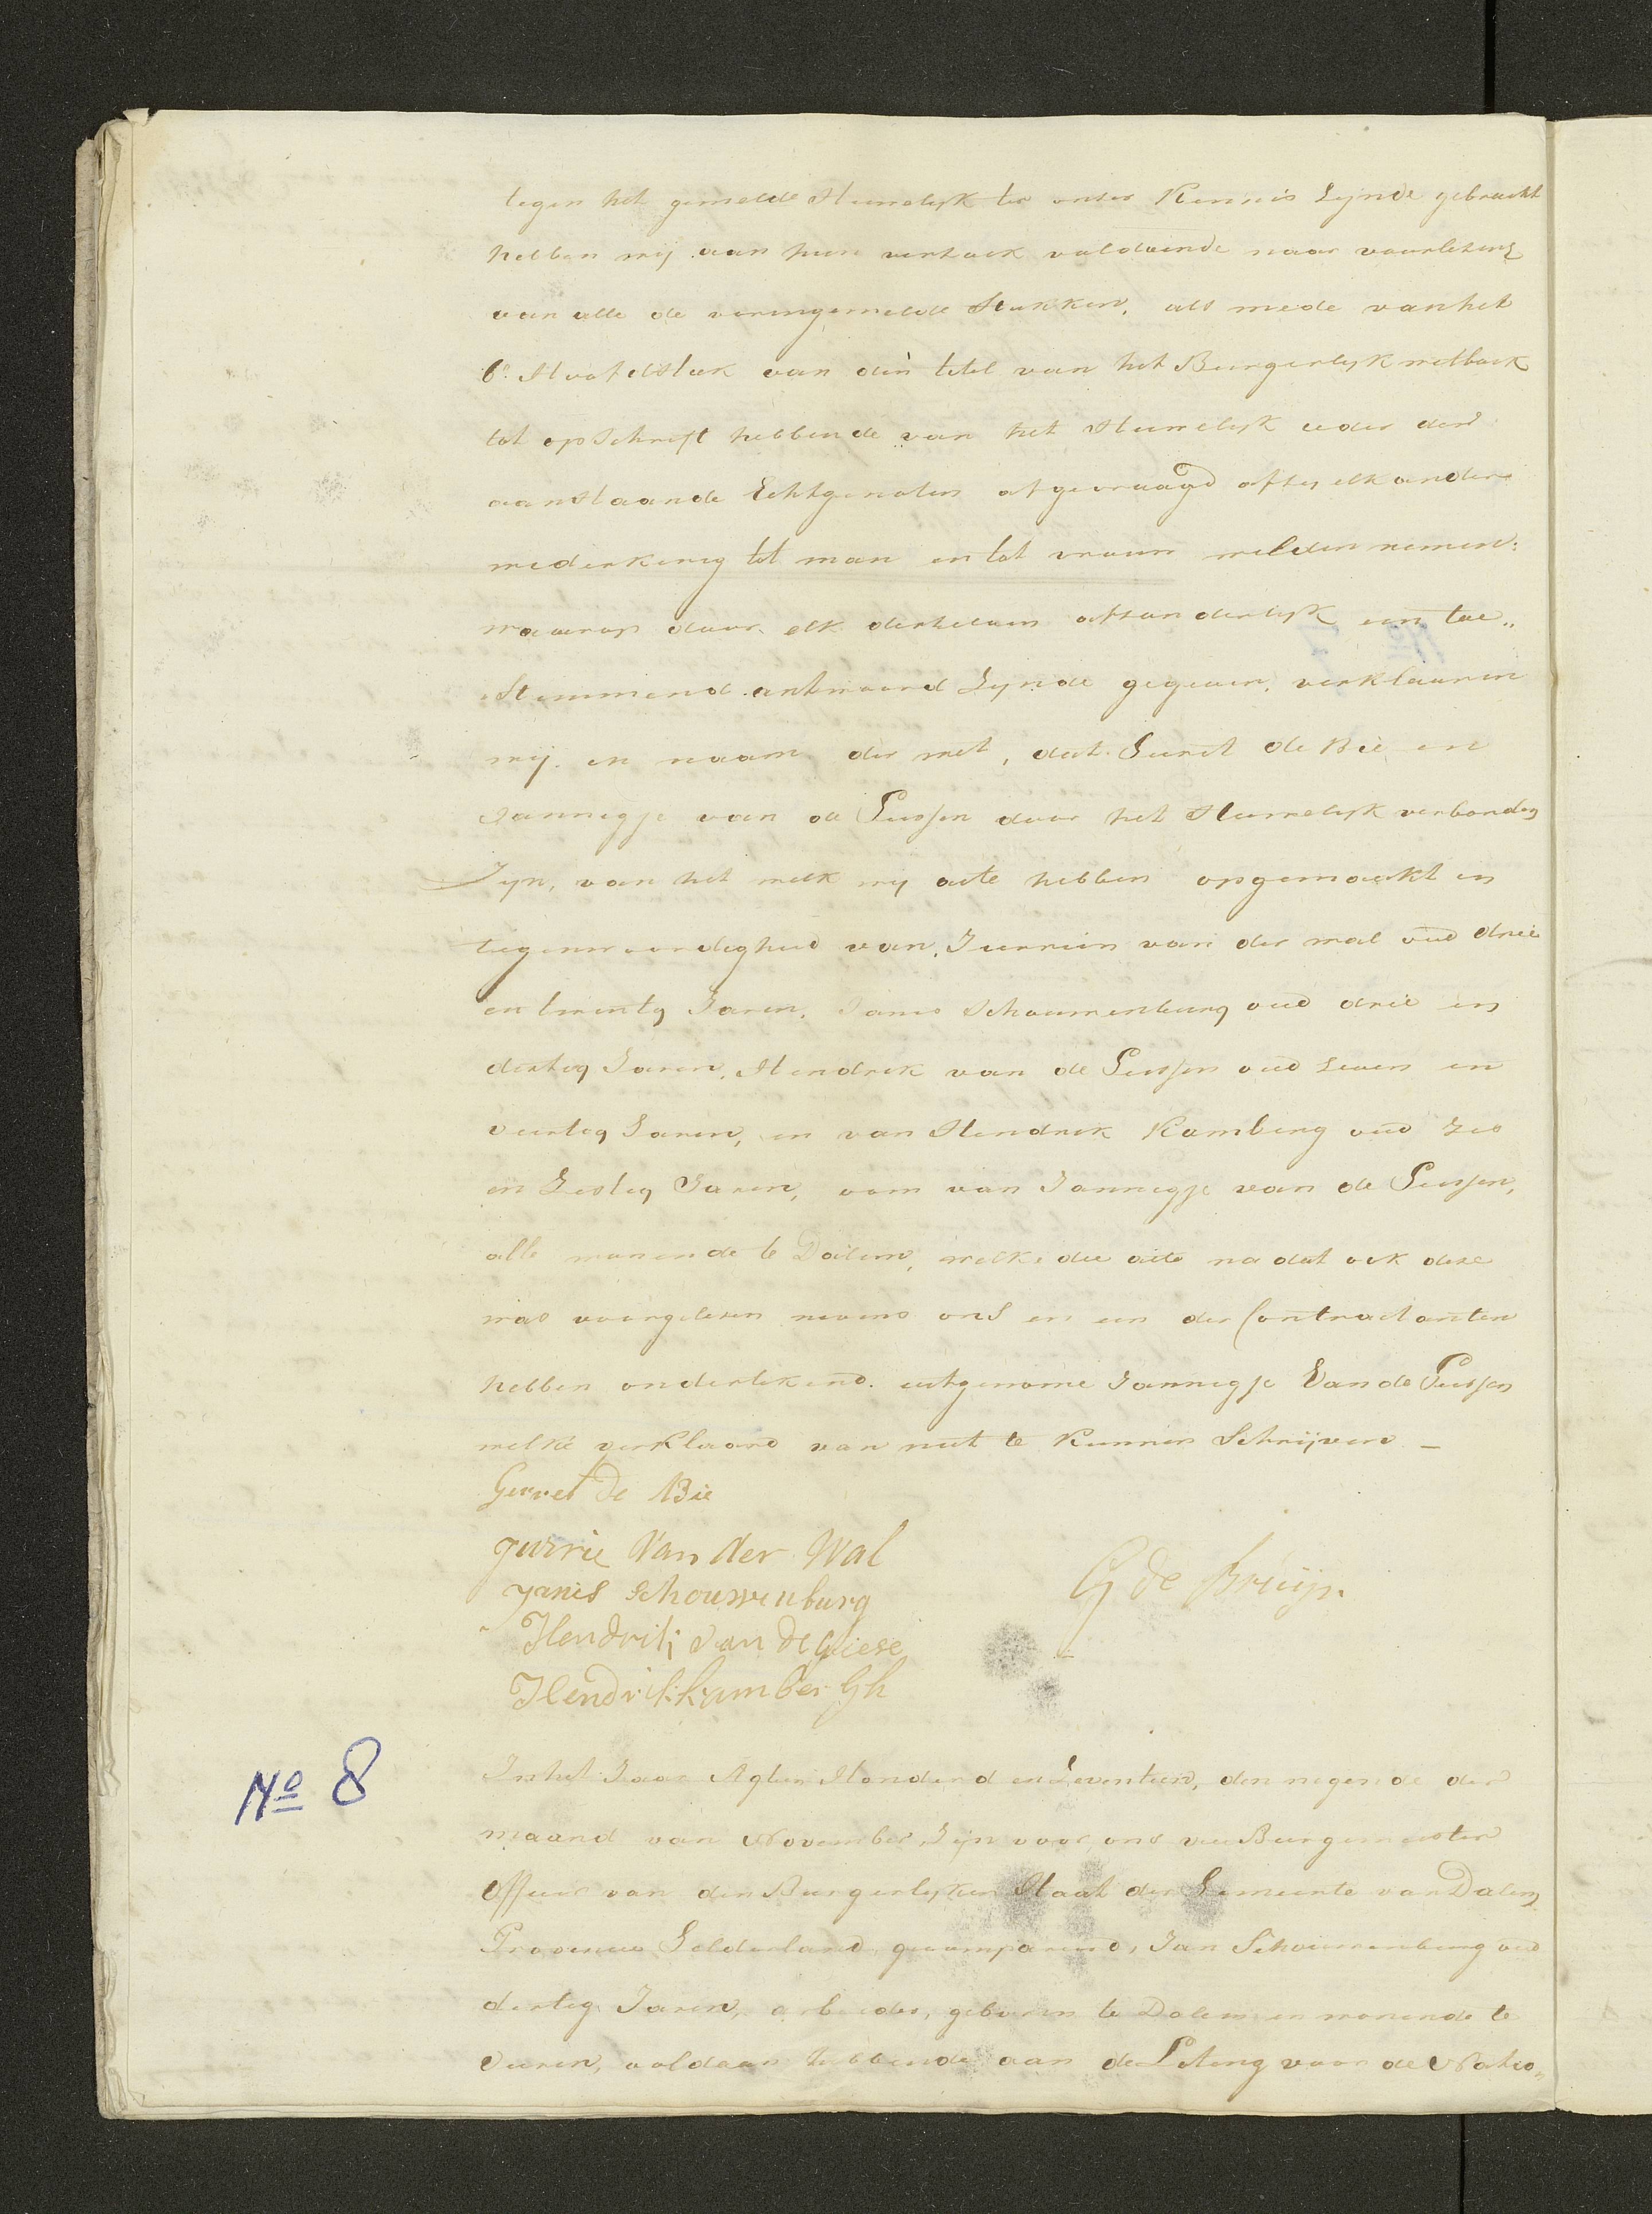 tegen het gemelde Huwelijk ter onser Kennis Zijnde gebracht
hebben wij aan hun verzoek voldoende naar voorlezing
van alle de voringemelde Stukken, als mede van het
6e Hoofdstuk van din titel van het Burgerlijk wetboek
tot opschrift hebbende van het Huwelijk ieder der
aanstaande Echtgenoten afgevraagd of zij elkander
wederkerig tot man en tot vrouw wilden nemen:
waarop door elk derzelven afzonderlijk een toe„
Stemmend antwoord Zijnde gegeven, verklaaren
wij in naam der wet, dat Gerret de Bie en
Jannigje van de Giessen door het Huwelijk verbonden
Zijn, van het welk wij acte hebben opgemaakt in
tegenwoordigheid van Jurrien van der wal oud drie
en twintig Jaren, Janis Schouwenburg oud drie en
dertig Jaren, Hendrik van de Giessen oud Zeven en
veertig Jaren, en van Hendrik Kamberg oud Zes
en Zestig Jaren, oom van Jannigje van de Giessen,
alle wonende te Dalem, welke die acte na dat ook deze
was voorgelezen nevens ons en een der Contractanten
hebben ondertekend. uitgenome Jannigje Van de Giessen
welke verklaard van niet te Kunnen Schrijven —
Gerret de Bie
Jurrie Van der Wal
Janis Schouwenburg
G de Bruijn
Hendrik van de Giese
Hendrik kambergh
No 8
In het Jaar Agtien Honderd en Zeventien, den negende der
maand van November, Zijn voor ons Burgemeester
Officier van den Burgerlijken Staat der Gemeente van Dalem
Provincie Gelderland, gecompareerd, Jan Schouwenburg oud
dertig Jaren, arbeider, geboren te Dalem en wonende te
Vuren, voldaan hebbende aan de Loting voor de Natio„